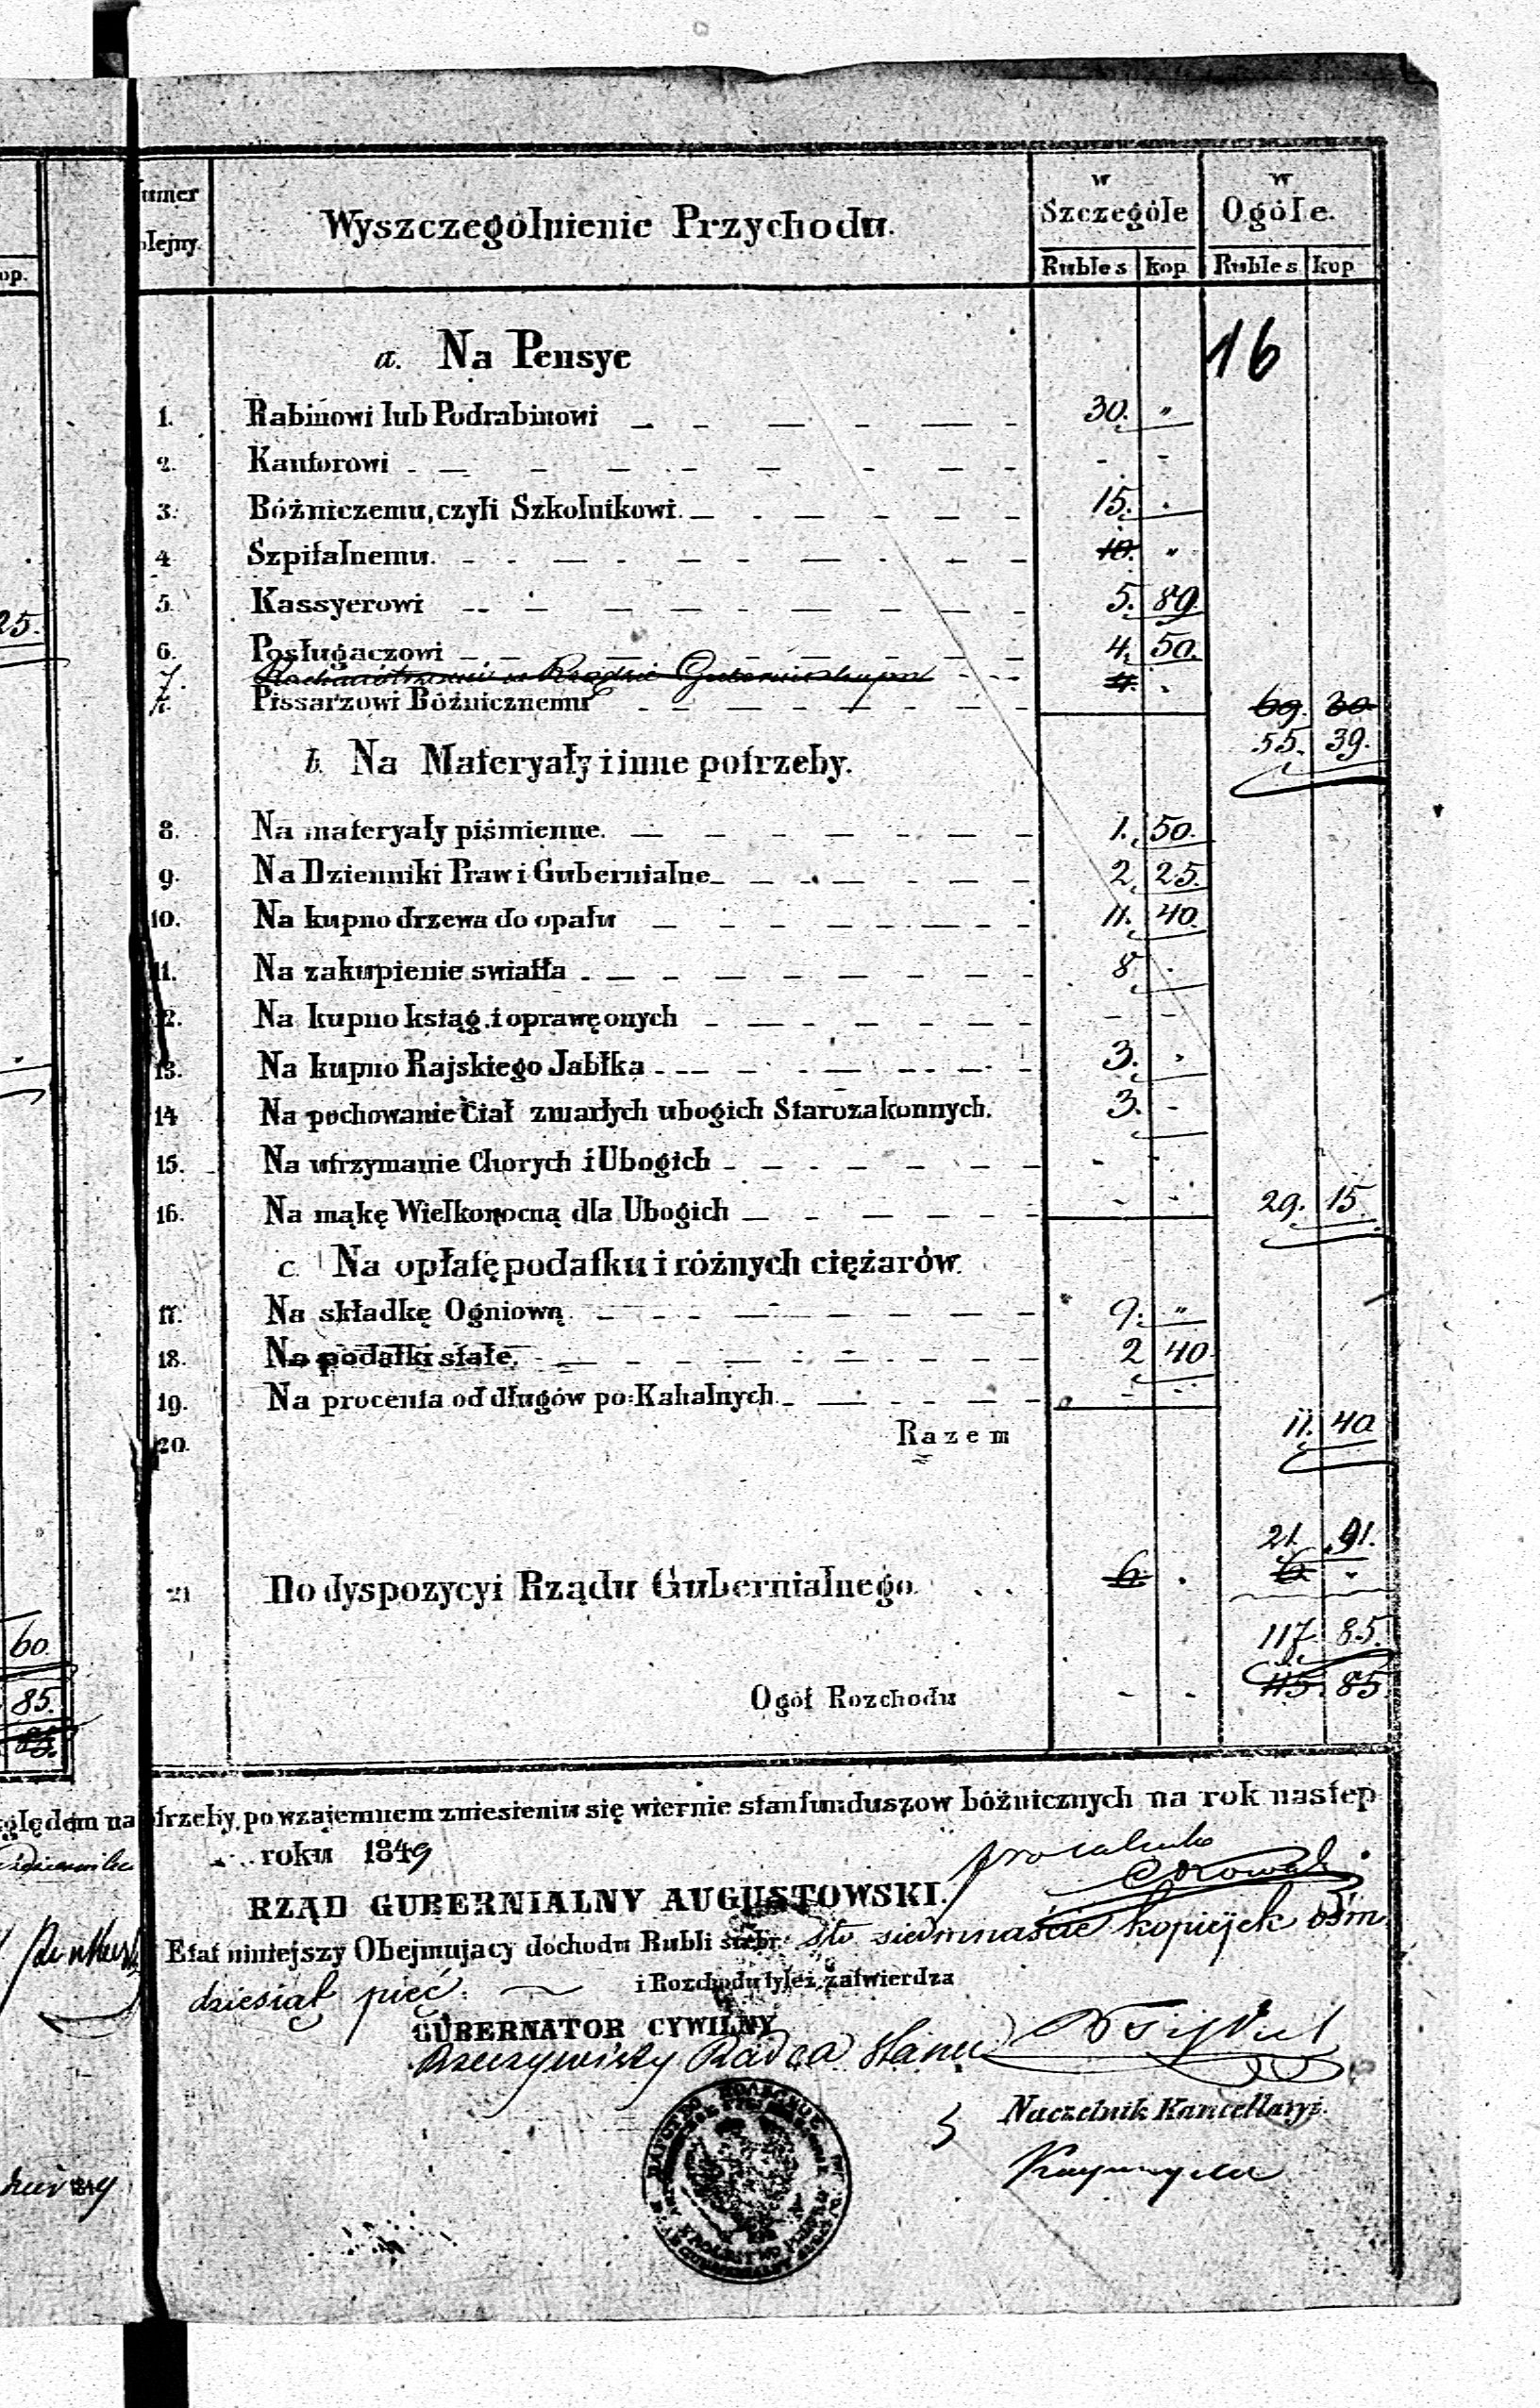 umer
olejny.
Wyszczególnienie Przychodu.
w Szczególe
w Ogóle.
Rubles kop Rubles kop
op.
16
a. Na Pensye
1. Rabinowi lub Podrabinowi 30. "
2. Kantorowi - -
3. Bóżniczemu, czyli Szkolnikowi. 15. .
4 Szpitalnemu. 10. "
5. Kassyerowi 5. 89.
25.
6. Posługaczowi 4. 50.
7. w Rządzie Gubernialnym 4. .
Pissarzowi Bóżnicznemu
69. 30
55. 39.
b. Na Materyały i inne potrzeby.
8. Na materyały piśmienne. 1. 50.
9. Na Dzienniki Praw i Gubernialne 2. 25.
10. Na kupno drzewa do opału 11. 40.
11. Na zakupienie swiatła 8. .
12. Na kupno ksiąg i oprawę onych - -
13. Na kupno Rajskiego Jabłka 3. .
14 Na pochowanie Ciał zmarłych ubogich Starozakonnych. 3. -
15. Na utrzymanie Chorych i Ubogich - -
16. Na mąkę Wielkonocną dla Ubogich - - 29. 15.
c. Na opłatę podatku i różnych ciężarów.
17. Na składkę Ogniową 9. "
18. Na podatki stałe. 2 40.
19. Na procenta od długów po:Kahalnych - -
20. Razem 11. 40
21. 91.
21 Do dyspozycyi Rządu Gubernialnego 6. . 6. -
60. 117. 85.
85. Ogół Rozchodu - - 115. 85.
85.
ględem na otrzeby, po wzajemnem zniesieniu się wiernie stan funduszow bóżnicznych na rok nastep
roku 1849
RZĄD GUBERNIALNY AUGUSTOWSKI.
Etat niniejszy Obejmujacy dochodu Rubli srebr: Sto siedmnaście kopiejek ośm
dziesiąt pięć. i Rozchodu tyleż, zatwierdza
GUBERNATOR CYWILNY
Rzeczywisty Radca Stanu
Naczelnik Kancellaryi.